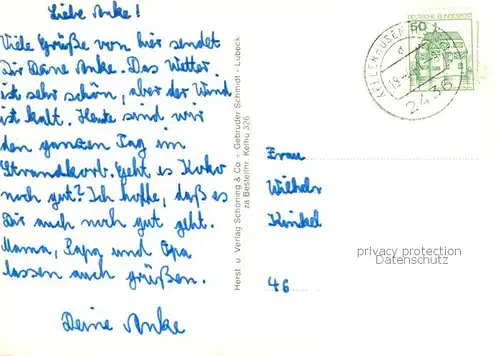 Liebe Anke!
Viele Grüße von hier sendet
Dir Deine Anke. Das Wetter
ist sehr schön, aber der Wind
ist kalt. Heute sind wir
den ganzen Tag im
Strandkorb. Geht es Koko
noch gut? Ich hoffe, daß es
Dir auch noch gut geht.
Mama, Papa und Opa
lassen auch grüßen.
Deine Anke
Herst. u. Verlag Schöning & Co + Gebrüder Schmidt · Lübeck
za Bestellnr. Kelhu 326
DEUTSCHE BUNDESPOST
50
KELLENHUSEN
d
2436
Frau
Wilhelm
Kinkel
46
privacy protection
Datenschutz